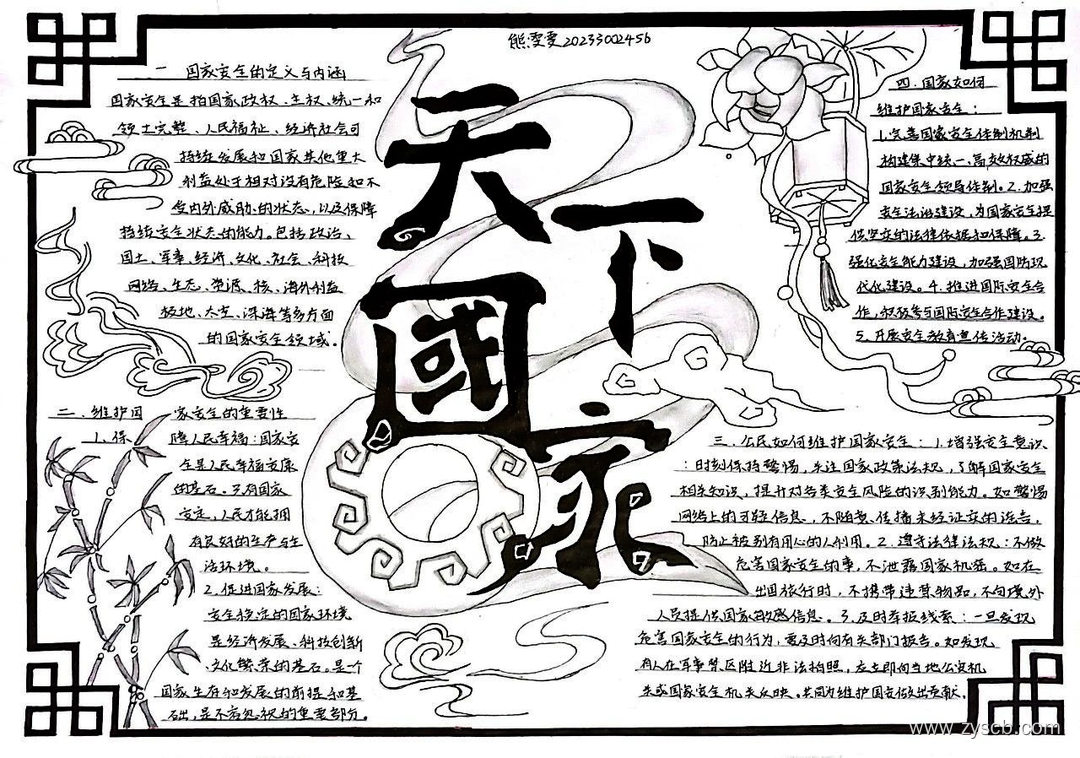 熊雯雯2023300245b
天下國家
一 国家安全的定义与内涵
国家安全是指国家政权、主权、统一和
领土完整、人民福祉、经济社会可
持续发展和国家其他重大
利益处于相对没有危险和不
受内外威胁的状态,以及保障
持续安全状态的能力。包括政治、
国土、军事、经济、文化、社会、科技
网络、生态、资源、核、海外利益
极地、太空、深海等多方面
的国家安全领域。
二、维护国家安全的重要性
1.保障人民幸福:国家安
全是人民幸福安康
的基石。只有国家
安定,人民才能拥
有良好的生产与生
活环境。
2.促进国家发展:
安全稳定的国家环境
是经济发展、科技创新
、文化繁荣的基石。是一个
国家生存和发展的前提和基
础,是不容忽视的重要部分。
三、公民如何维护国家安全:1.增强安全意识
:时刻保持警惕,关注国家政策法规,了解国家安全
相关知识,提升对各类安全风险的识别能力。如警惕
网络上的可疑信息,不随意传播未经证实的谣言,
防止被别有用心的人利用。2.遵守法律法规:不做
危害国家安全的事,不泄露国家机密。如在
出国旅行时,不携带违禁物品,不向境外
人员提供国家敏感信息。3.及时举报线索:一旦发现
危害国家安全的行为,要及时向有关部门报告。如发现
有人在军事禁区附近非法拍照,应立即向当地公安机
关或国家安全机关反映。共同为维护国安做出贡献。
四、国家如何
维护国家安全:
1.完善国家安全体制机制
构建集中统一、高效权威的
国家安全领导体制。2.加强
安全法治建设,为国家安全提
供坚实的法律依据和保障。3.
强化安全能力建设,加强国防现
代化建设。4.推进国际安全合
作,积极参与国际安全合作建设。
5.开展安全教育宣传活动。
www.zyscb.com